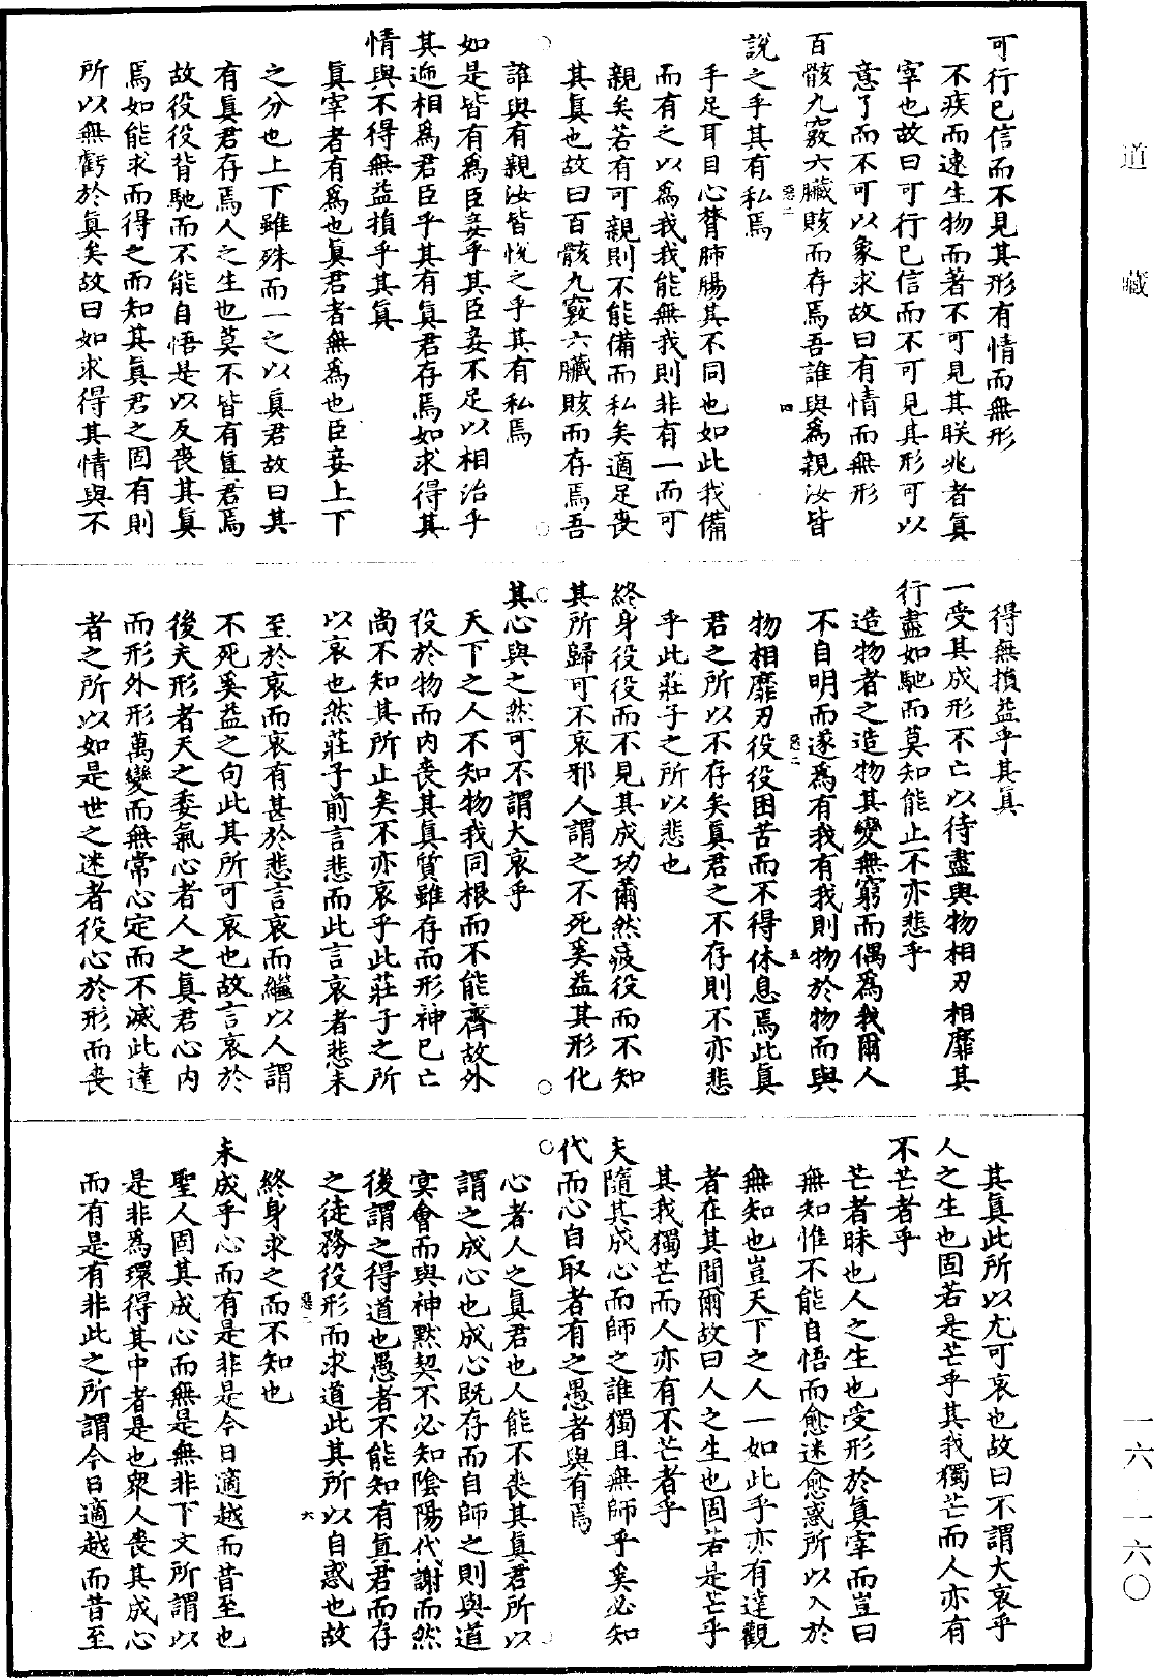 道藏
一六－一六〇
可行已信而不見其形有情而無形
不疾而速生物而著不可見其朕兆者真
宰也故曰可行已信而不可見其形可以
意了而不可以象求故曰有情而無形
百骸九竅六臟賅而存焉吾誰與爲親汝皆
說之乎其有私焉
手足耳目心膂肺腸其不同也如此我備
而有之以爲我我能無我則非有一而可
親矣若有可親則不能備而私矣適足喪
其真也故曰百骸九竅六臟賅而存焉吾
誰與有親汝皆悅之乎其有私焉
如是皆有爲臣妾乎其臣妾不足以相治乎
其遞相爲君臣乎其有真君存焉如求得其
情與不得無益損乎其真
真宰者有爲也真君者無爲也臣妾上下
之分也上下雖殊而一之以真君故曰其
有真君存焉人之生也莫不皆有真君焉
故役役背馳而不能自悟是以反喪其真
焉如能求而得之而知其真君之固有則
所以無虧於真矣故曰如求得其情與不
得無損益乎其真
一受其成形不亡以待盡與物相刃相靡其
行盡如馳而莫知能止不亦悲乎
造物者之造物其變無窮而偶爲我爾人
不自明而遂爲有我有我則物於物而與
物相靡刃役役困苦而不得休息焉此真
君之所以不存矣真君之不存則不亦悲
乎此莊子之所以悲也
終身役役而不見其成功薾然疲役而不知
其所歸可不哀邪人謂之不死奚益其形化
其心與之然可不謂大哀乎
天下之人不知物我同根而不能齊故外
役於物而內喪其真質雖存而形神已亡
尚不知其所止矣不亦哀乎此莊子之所
以哀也然莊子前言悲而此言哀者悲未
至於哀而哀有甚於悲言哀而繼以人謂
不死奚益之句此其所可哀也故言哀於
後夫形者天之委氣心者人之真君心內
而形外形萬變而無常心定而不滅此達
者之所以如是世之迷者役心於形而喪
其真此所以尤可哀也故曰不謂大哀乎
人之生也固若是芒乎其我獨芒而人亦有
不芒者乎
芒者昧也人之生也受形於真宰而豈曰
無知惟不能自悟而愈迷愈惑所以入於
無知也豈天下之人一如此乎亦有達觀
者在其間爾故曰人之生也固若是芒乎
其我獨芒而人亦有不芒者乎
夫隨其成心而師之誰獨且無師乎奚必知
代而心自取者有之愚者與有焉
心者人之真君也人能不喪其真君所以
謂之成心也成心既存而自師之則與道
冥會而與神默契不必知陰陽代謝而然
後謂之得道也愚者不能知有真君而存
之徒務役形而求道此其所以自惑也故
終身求之而不知也
未成乎心而有是非是今日適越而昔至也
聖人固其成心而無是無非下文所謂以
是非爲環得其中者是也衆人喪其成心
而有是有非此之所謂今日適越而昔至